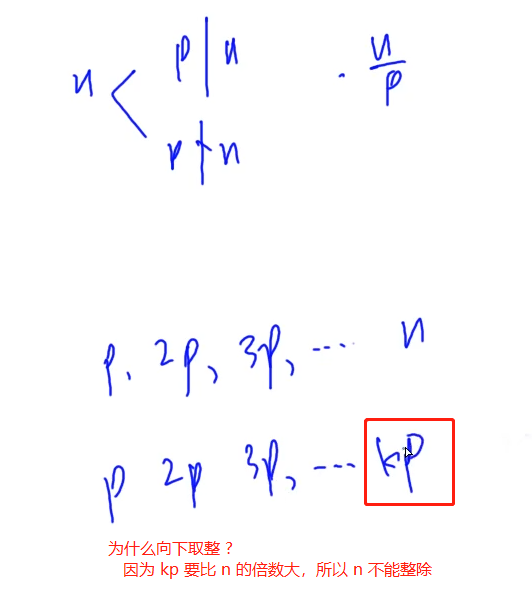 n < p | n · n/p
p ∤ n
p, 2p, 3p, ---- n
p 2p 3p, --- kp
为什么向下取整？
因为 kp 要比 n 的倍数大，所以 n 不能整除